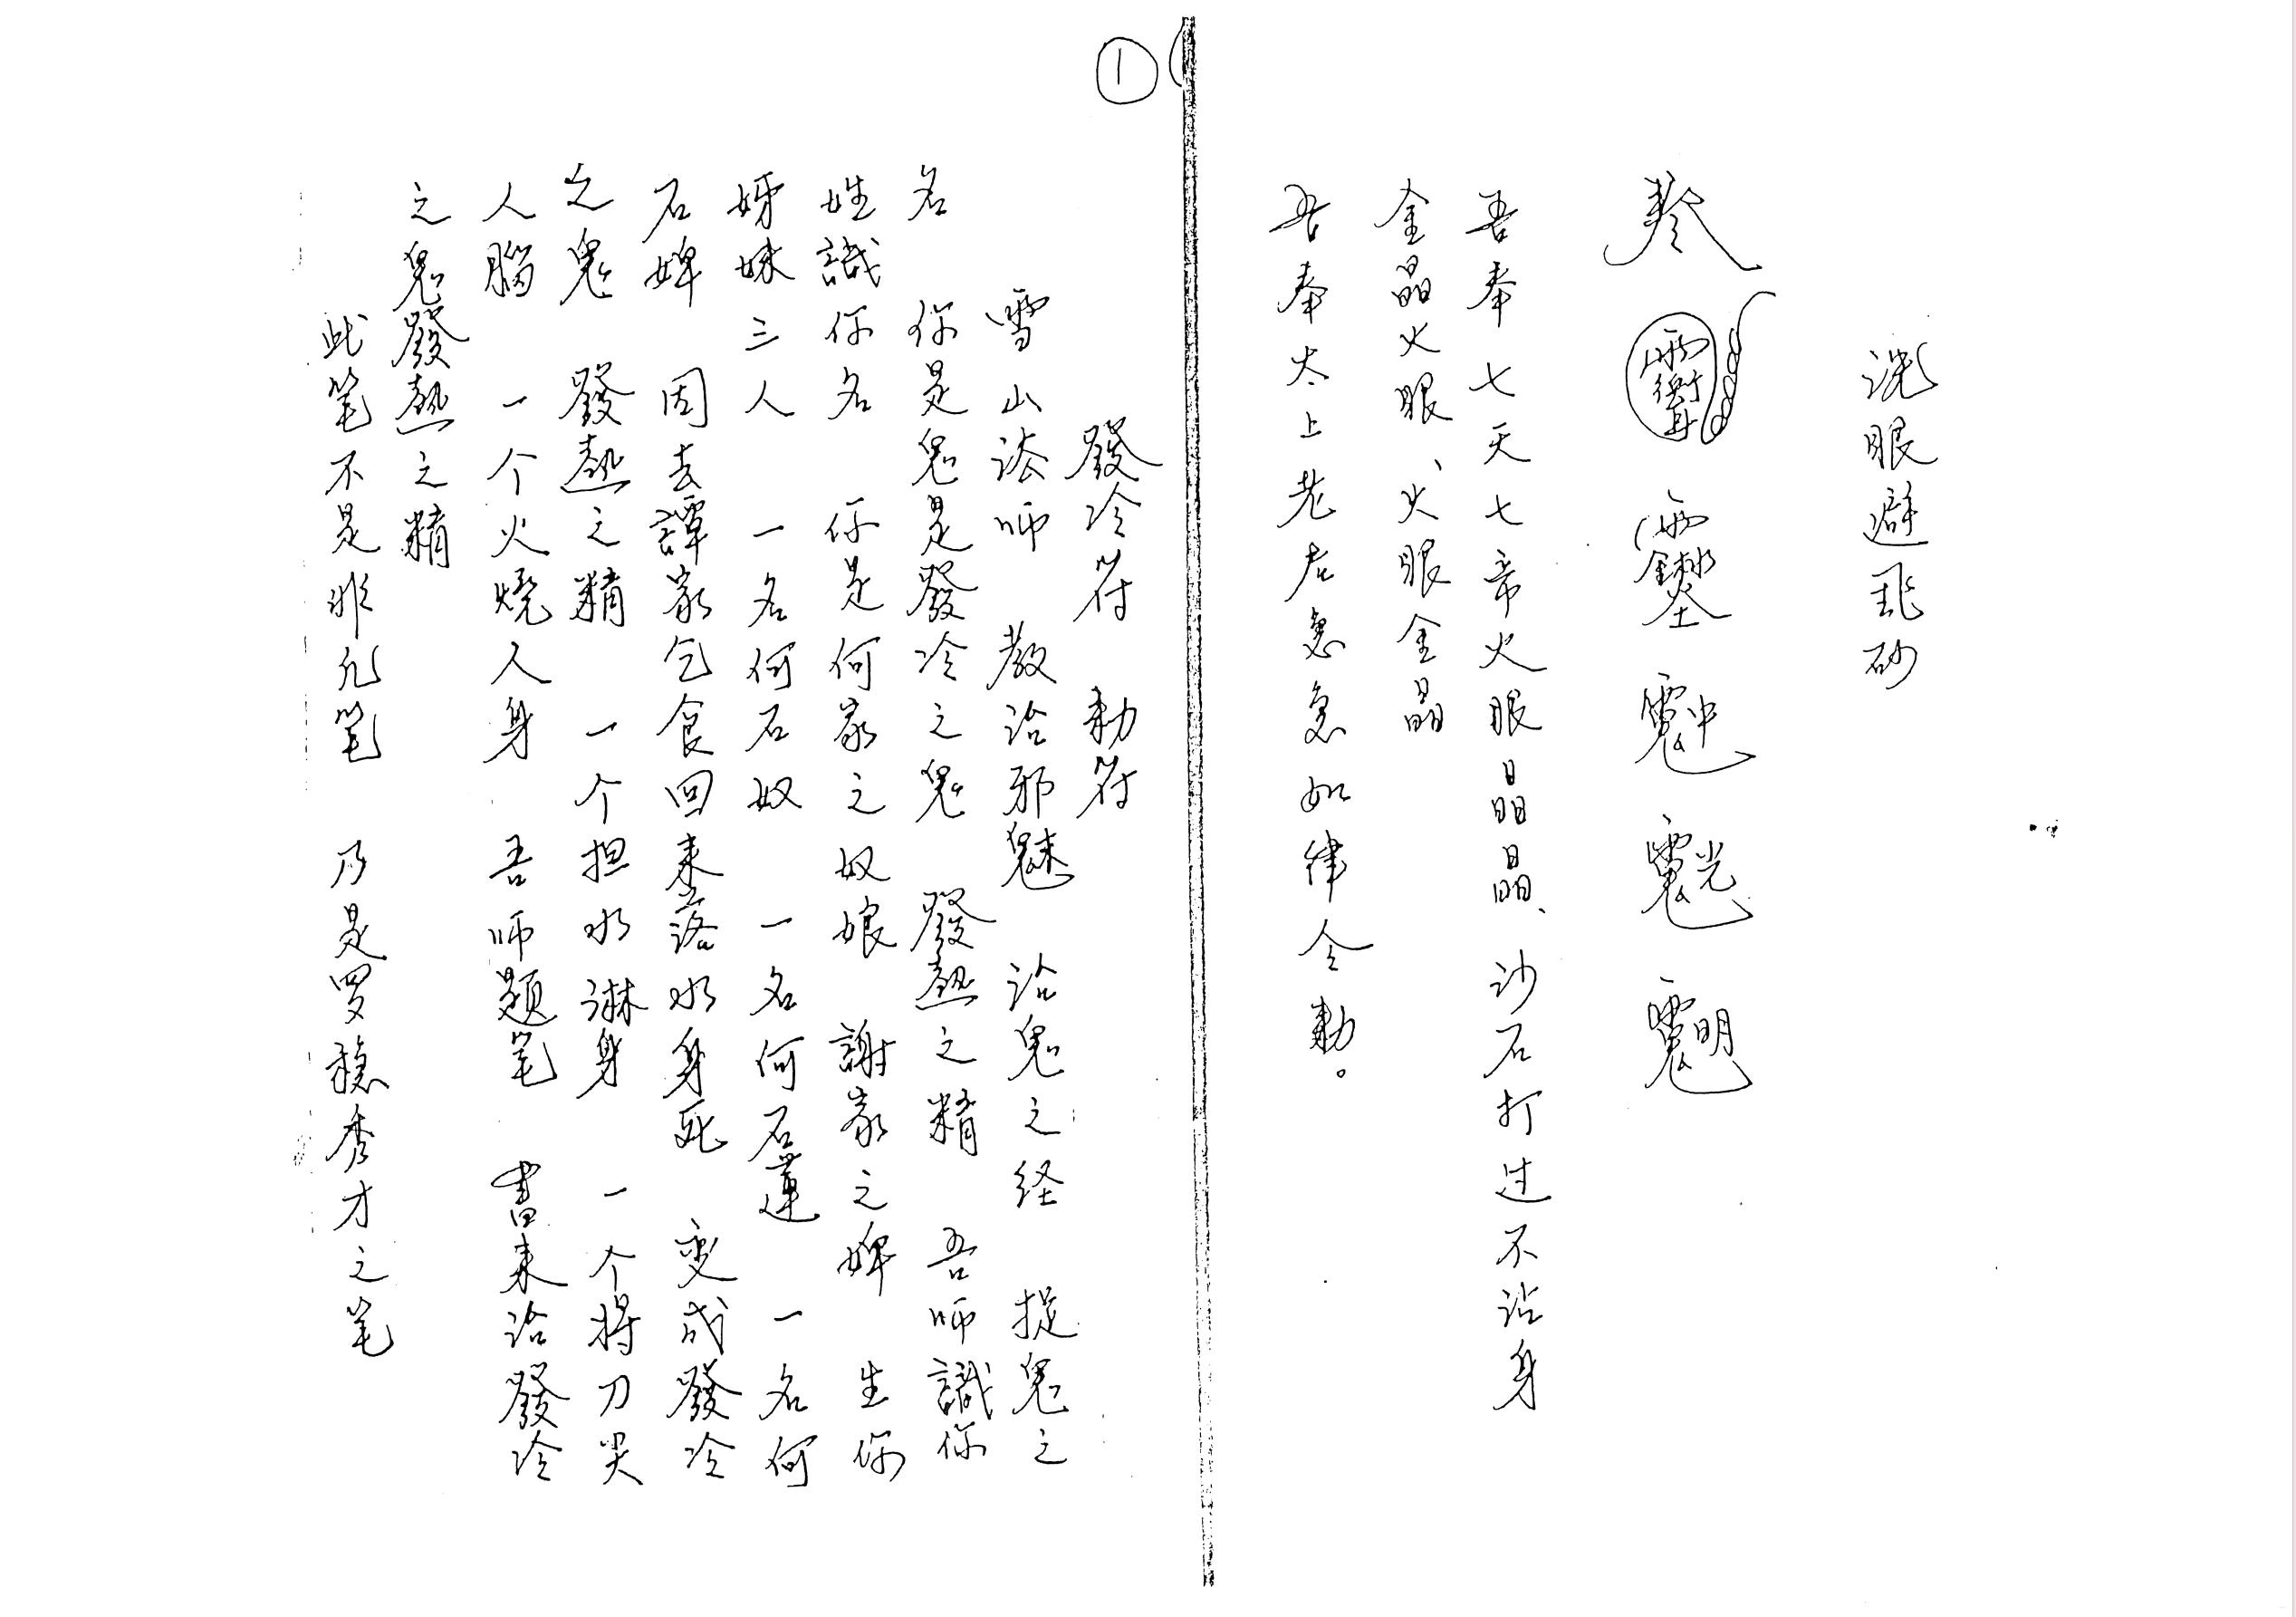 洗眼避飛砂
吾奉七天七帝火眼晶晶、沙石打过不沾身
金晶火眼、火眼金晶
吾奉太上老君急急如律令勅。
①
發冷符 勅符
雪山法师 教治邪魅 治鬼之经 捉鬼之
名 你是鬼鬼是發冷之鬼 發热之精 吾师識你
姓識你名 你是何家之奴娘 謝家之婢 生你
姊妹三人 一名何石奴 一名何石蓮 一名何
石婢 因去譚家乞食回来落水身死 变成發冷
之鬼 發热之精 一个担水淋身 一个将刀尖
人腦 一个火燒人身 吾师題笔 書来治發冷
之鬼發热之精
此笔不是非凡笔 乃是罗穩秀才之笔